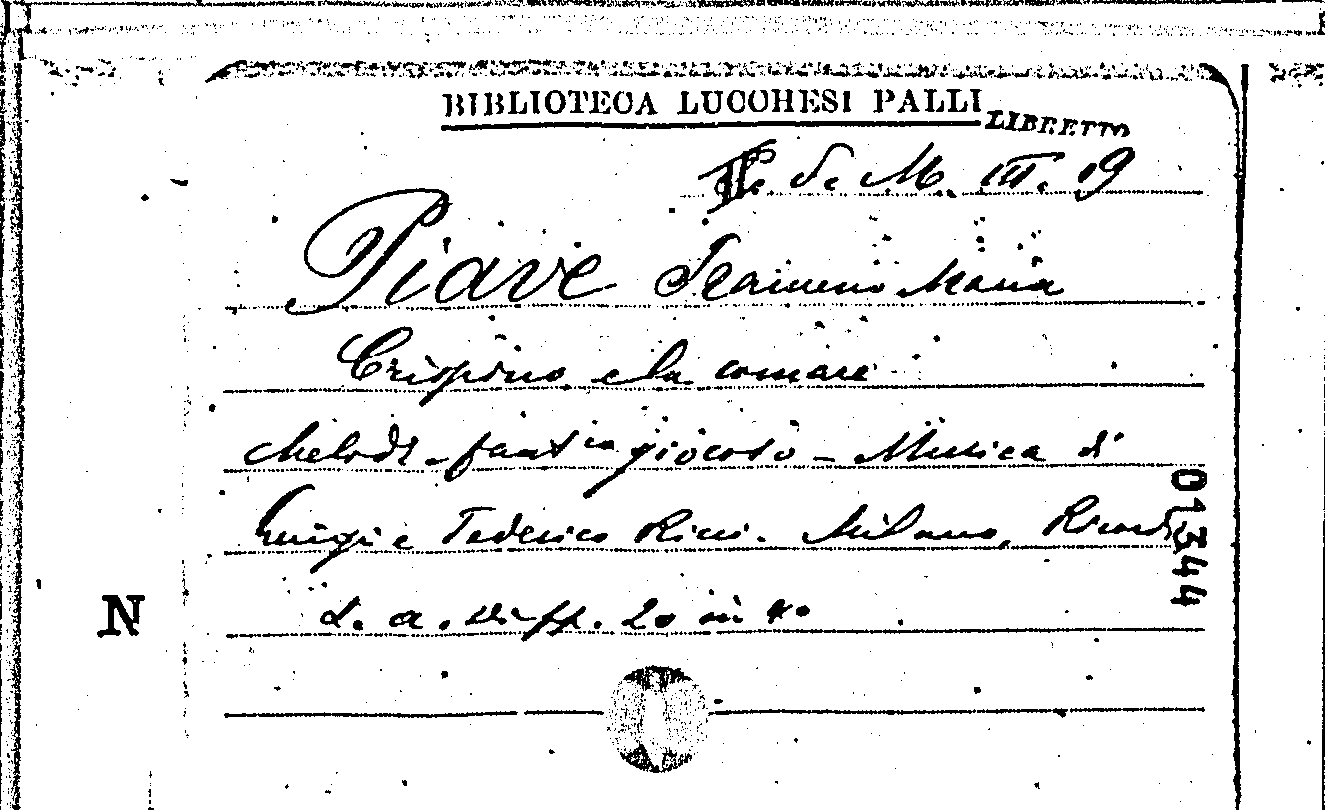 BIBLIOTECA LUCCHESI PALLI
LIBRETTO
S. M. III. 19
Piave Francesco Maria
Crispino e la comare
Melodr. fantco giocoso - Musica di
Luigi e Federico Ricci. Milano, Ricordi
s. a. di pp. 20 in 4º
01344
N